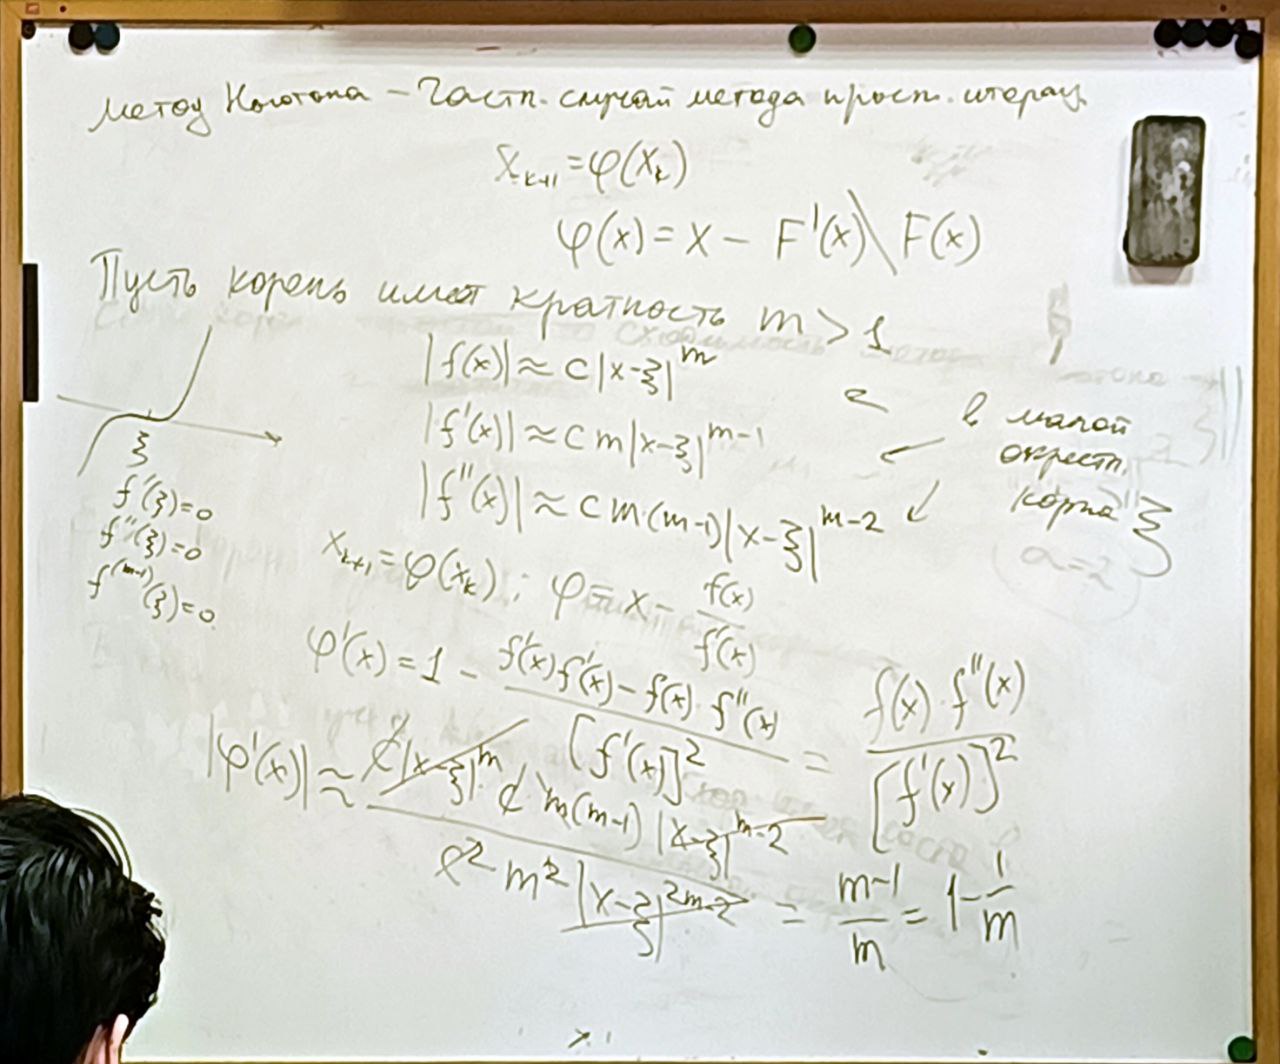 Метод Ньютона – Частн. случай метода прост. итерац.
x_{k+1} = φ(x_k)
φ(x) = x – F'(x) \ F(x)
Пусть корень имеет кратность m > 1
|f(x)| ≈ c|x-ξ|^m
|f'(x)| ≈ c m|x-ξ|^{m-1}
|f''(x)| ≈ c m·(m-1)|x-ξ|^{m-2}
в малой
окрестн.
корня ξ
ξ
f'(ξ)=0
f''(ξ)=0
f^{(m-1)}(ξ)=0
x_{k+1} = φ(x_k) ; φ = x - f(x)/f'(x)
φ'(x) = 1 - (f'(x)f'(x) - f(x)·f''(x))/[f'(x)]² = f(x)·f''(x)/[f'(x)]²
|φ'(x)| ≈ c|x-ξ|^m · c · m(m-1)|x-ξ|^{m-2} / c² m² |x-ξ|^{2m-2} = (m-1)/m = 1 - 1/m